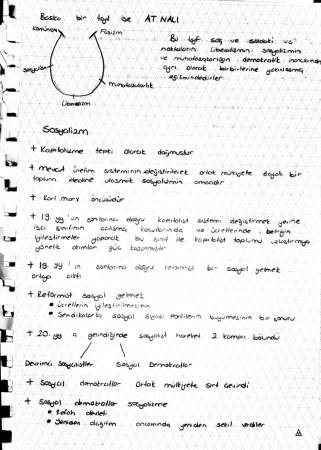 Başka bir tayf ise AT NALI
Komünizm Faşizm
sosyalizm
muhafazakarlık
Liberalizm
Bu tayf sağ ve soldaki uç
noktaların liberalizmin sosyalizmin
ve muhafazakarlığın demokratik inancından
ayrı olarak birbirlerine yakınlaşma
eğilimindedirler
Sosyalizm
+ Kapitalizme tepki olarak doğmuştur
+ mevcut üretim sisteminin değiştirilerek ortak mülkiyete dayalı bir
toplum idealine ulaşmak sosyalizmin amacıdır
+ Karl marx öncüsüdür
+ 19. yy'ın sonlarına doğru kapitalist sistemi değiştirmek yerine
işci sınıfının çalışma koşullarında ve ücretlerinde belirgin
iyileştirmeler yaparak bu sınıfı ile kapitalist toplumu uzlaştırmaya
yönelik akımlar güç kazanmıştır
+ 19. yy'ın sonlarına doğru reformist bir sosyal gelenek
ortaya çıktı
+ Reformist sosyal gelenek
• ücretlerin iyileştirilmesinin
• Sendikalarla sosyal siyasi partilerin büyümesinin bir sonucu
+ 20. yy a gelindiğinde sosyalist hareket 2 kampa bölündü
Devrimci Sosyalistler Sosyal Demokratlar
+ Sosyal demokratlar Ortak mülkiyete sırt çevirdi
+ Sosyal demokratlar sosyalizme
• Refah devleti
• Yeniden dağıtım anlamında yeniden şekil verdiler